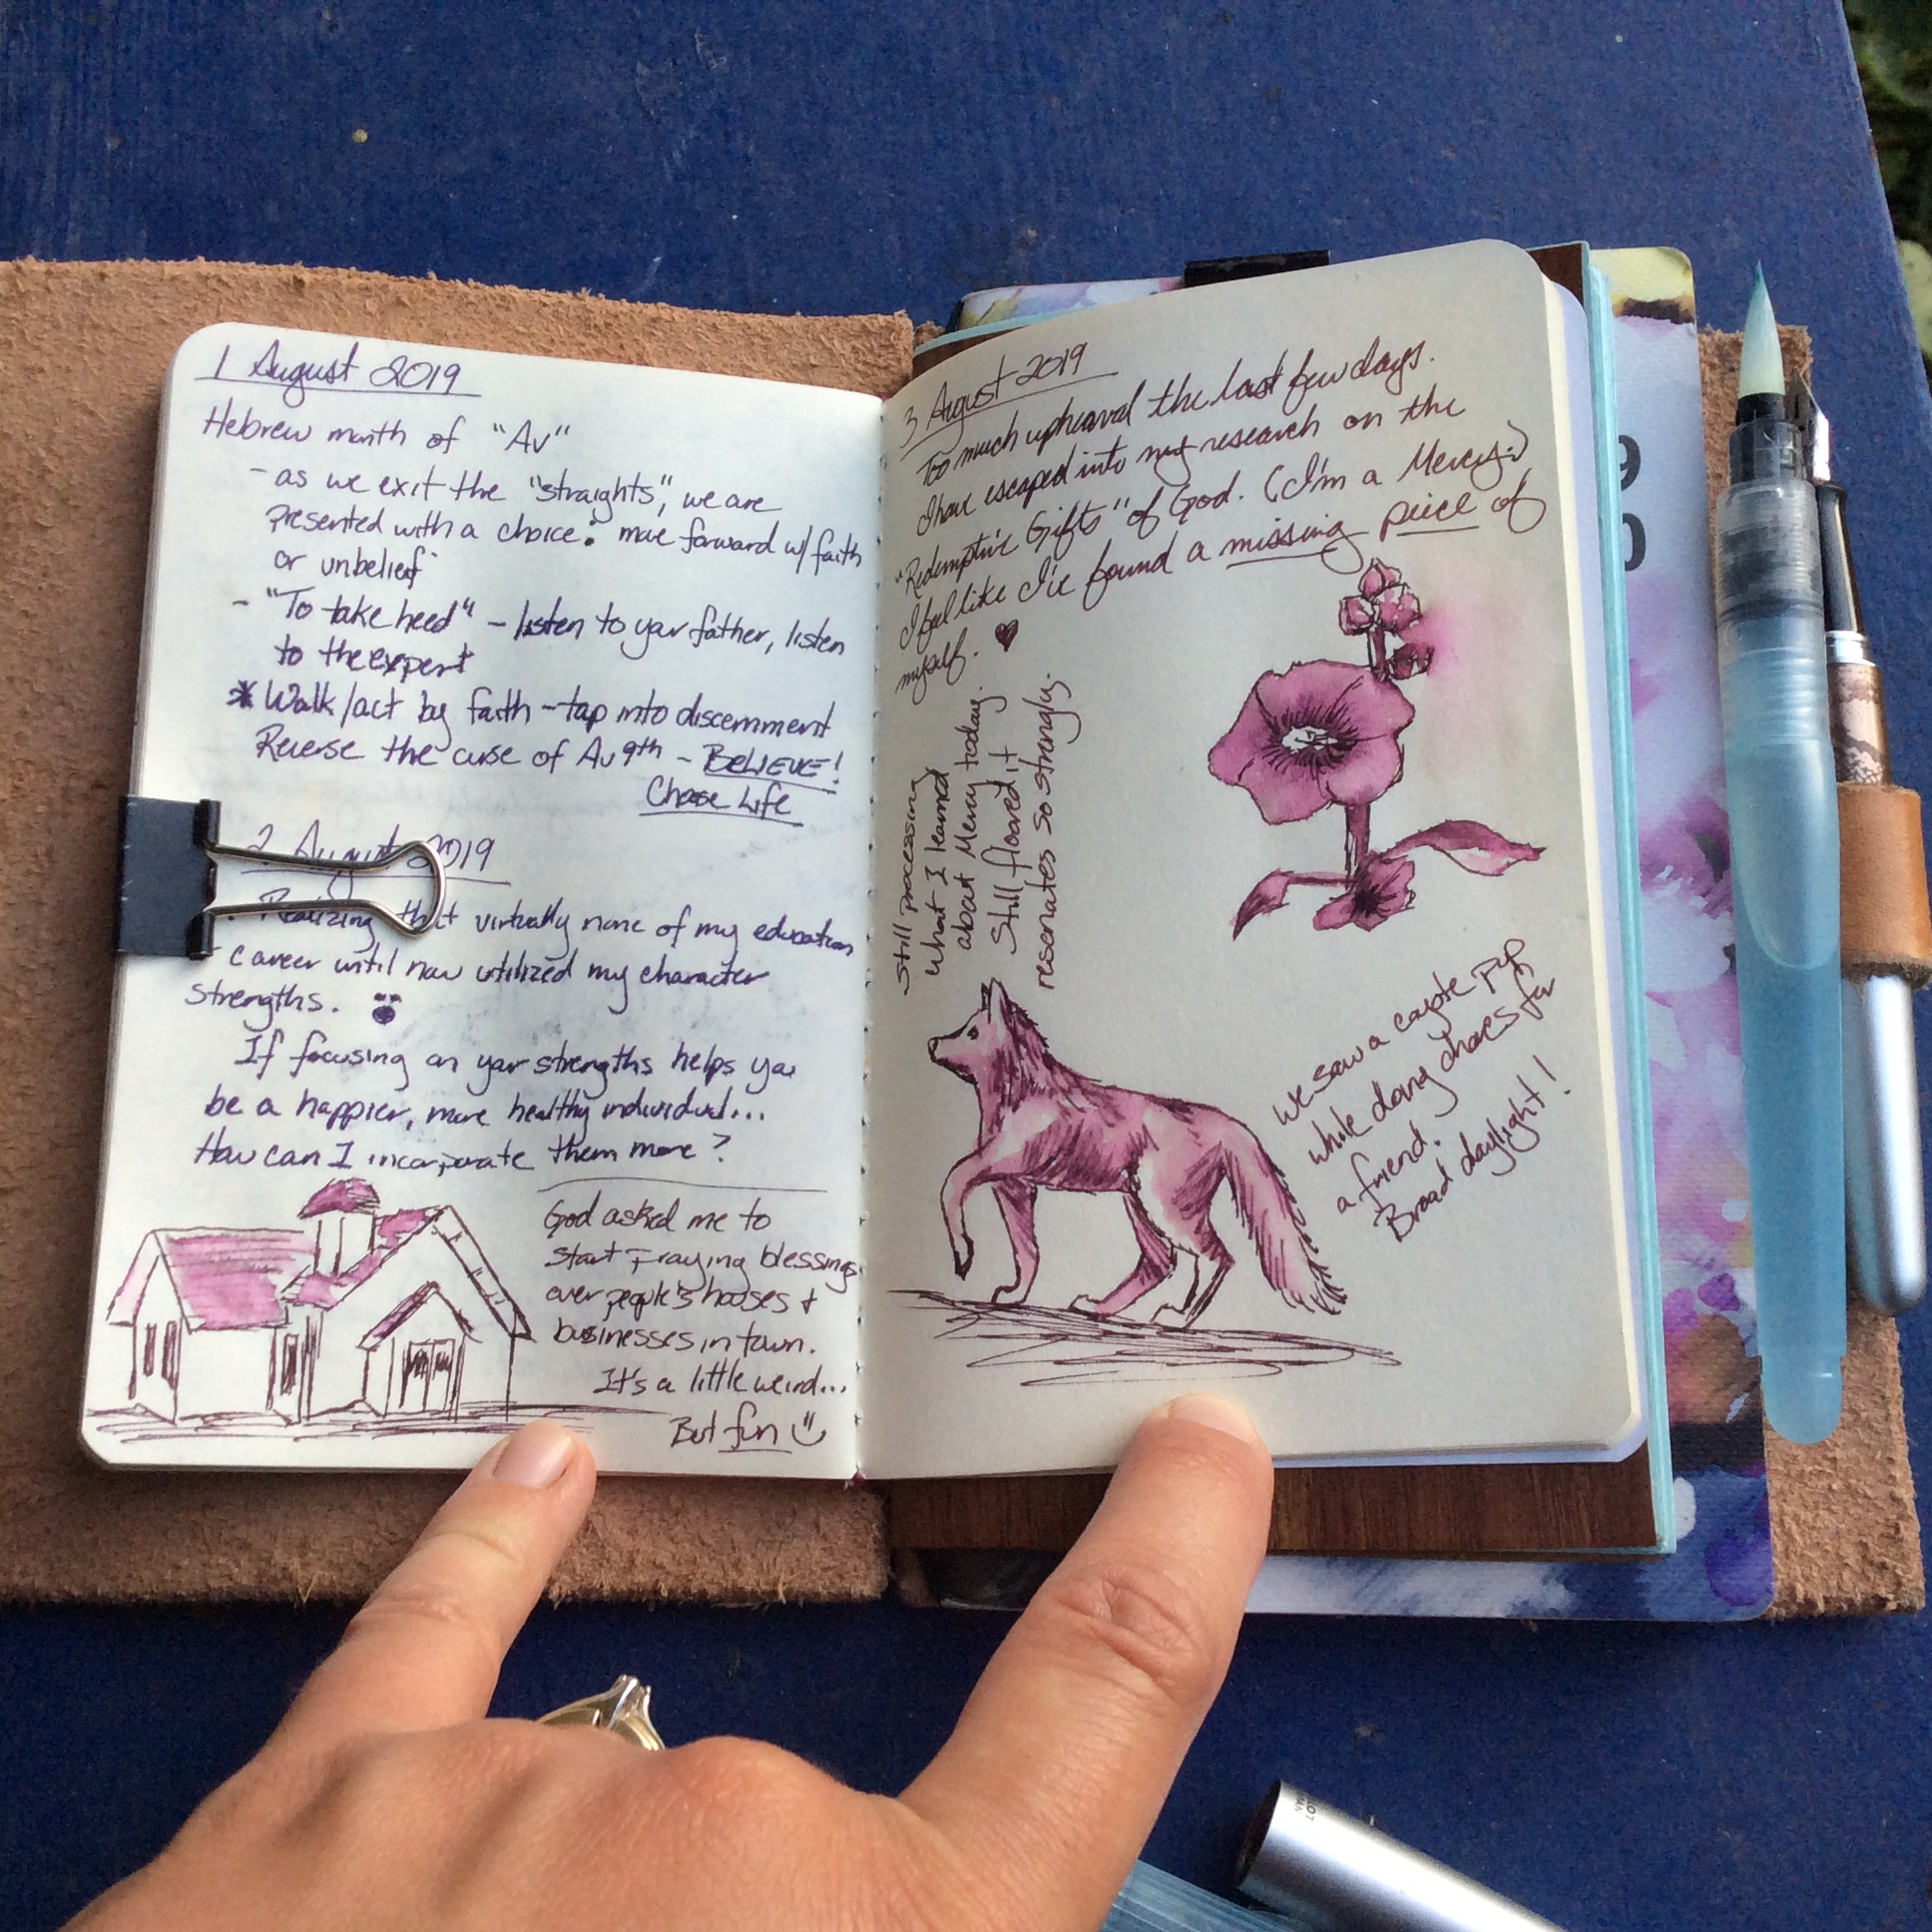 1 August 2019
Hebrew month of "Av"
- as we exit the "straights", we are
presented with a choice: move forward w/ faith
or unbelief
- "To take heed" - listen to your father, listen
to the expert
* Walk/act by faith - tap into discernment
Reverse the curse of Av 9th - BELIEVE!
Choose Life
2 August 2019
Realizing that virtually none of my education
career until now utilized my character
strengths.
If focusing on your strengths helps you
be a happier, more healthy individual...
How can I incorporate them more?
God asked me to
start praying blessings
over people's houses +
businesses in town.
It's a little weird...
But fun
3 August 2019
Too much upheaval the last few days.
I have escaped into my research on the
"Redemptive Gifts" of God. (I'm a Mercy:)
I feel like I've found a missing piece of
myself. ♥
Still processing
what I learned
about Mercy today.
Still floored it
resonates so strongly.
We saw a coyote pup
while doing chores for
a friend.
Broad daylight!
9
0